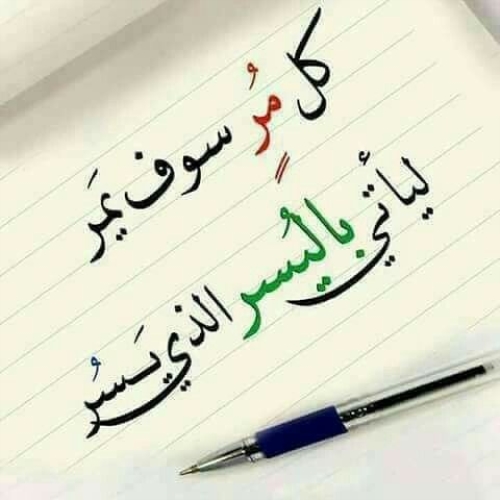 كل مُرٍ سوف يمَر
ليأتي باليُسر الذي يَسرُ